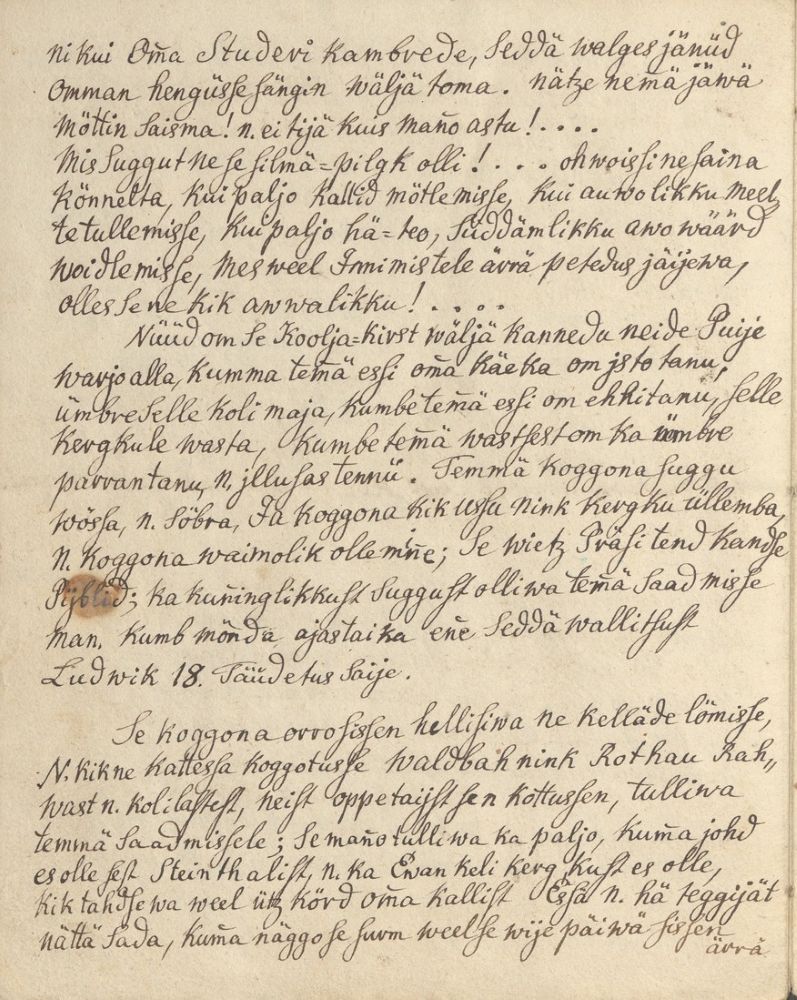 ni kui Om̃a Studeri kambrede, Seddä walges jänüd
omman hengüsse sängin wäljä toma. nätze nemä jäwä
möttin saisma! n. ei tijä kuis mañó astu! . . . .
Mis Suggut ne se silmä=pilgk olli! . . . oh woissi ne saina
könnelta, kui paljo kallid mötlemisse, kui auwolikku meel
tetullemisse, kui paljo hä=teo, süddämlikku awo wäärd
woidlemisse, mes weel Innimistele ärrä petedus jäijewa,
olles se ne kik awwalikku! . . . .
Nüüd om Se Koolja=kirst wäljä kannedu neide Puije
warjo alla, kumma tem̃ä essi om̃a käeka om jstotanu,
ümbre selle koli maja, kumbe tem̃ä essi om ehhitanu, selle
Kergkule wasta, kumbe tem̃ä wastsest om ka ümbre
parrantanu, n. jllusas tennü. Temmä koggona suggu
wössa, n. söbra, Ja koggona kik ussu nink kergku üllemba,
n. koggona waimolik ollemiñe; Se wietz Präsitend kandse
Pijblid; ka kuñinglikkust suggust olliwa tem̃ä saadmisse
man. kumb mönda ajastaika eñe Seddä wallitsust
Ludwik 18. Täüdetus saije.
Se koggona orro sissen hellisiwa ne kelläde lömisse,
N. kik ne kattessa koggotusse Waldbah nink Rothau Rah„
wast n. kolilastest, neist oppetaijst sen kottussen, tulliwa
temmä Saadmissele; Se mañó tulliwa ka paljo, kum̃a johd
es olle sest Steinthalist, n. ka Ewankeli kergkust es olle,
kik tahdsewa weel ütz körd om̃a kallist Essa n. hä teggijät
nättä sada, kum̃a näggo se surm weel se wije päiwä sissen
ärrä